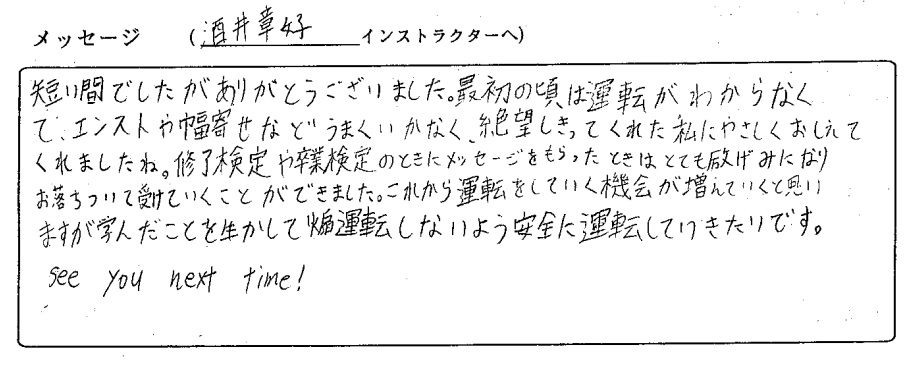 メッセージ (酒井章好 インストラクターへ)
短い間でしたがありがとうございました。最初の頃は運転がわからなく
て、エンストや幅寄せなどうまくいかなく、絶望しきってくれた私にやさしくおしえて
くれましたね。修了検定や卒業検定のときにメッセージをもらったときはとても励げみになり
お落ちついて受けていくことができました。これから運転をしていく機会が増えていくと思い
ますが学んだことを生かして煽運転しないよう安全に運転していきたいです。
see you next time!